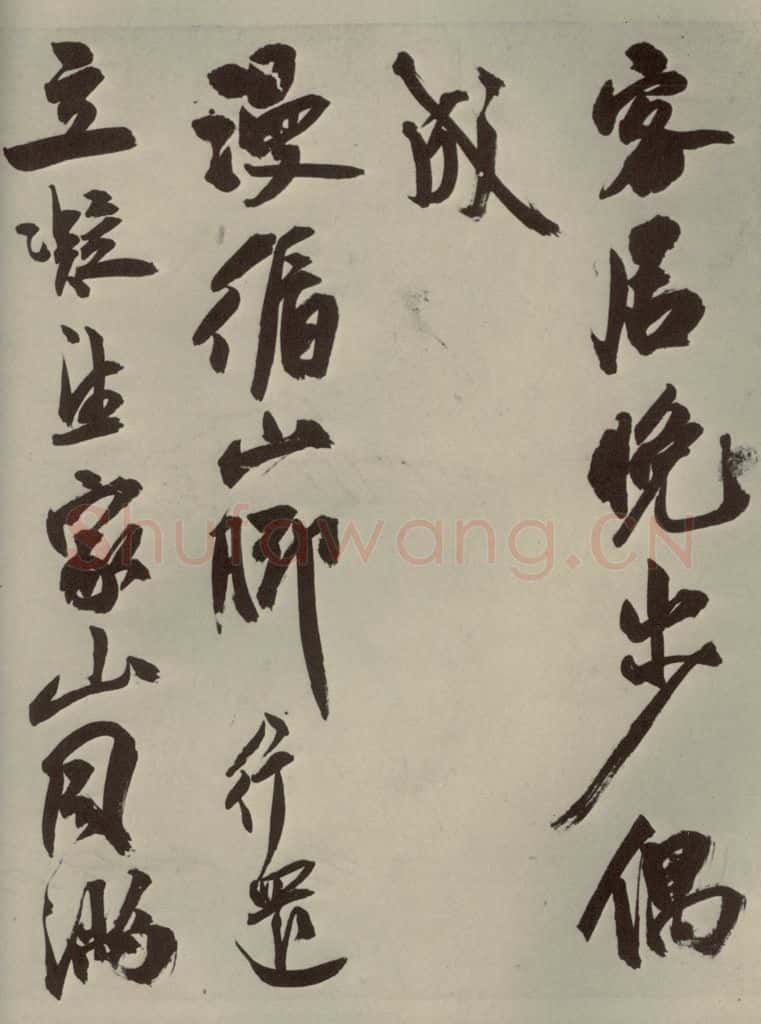 客居晚步偶
成
漫循山脚行還
立凝望家山月滿
Shufawang.CN